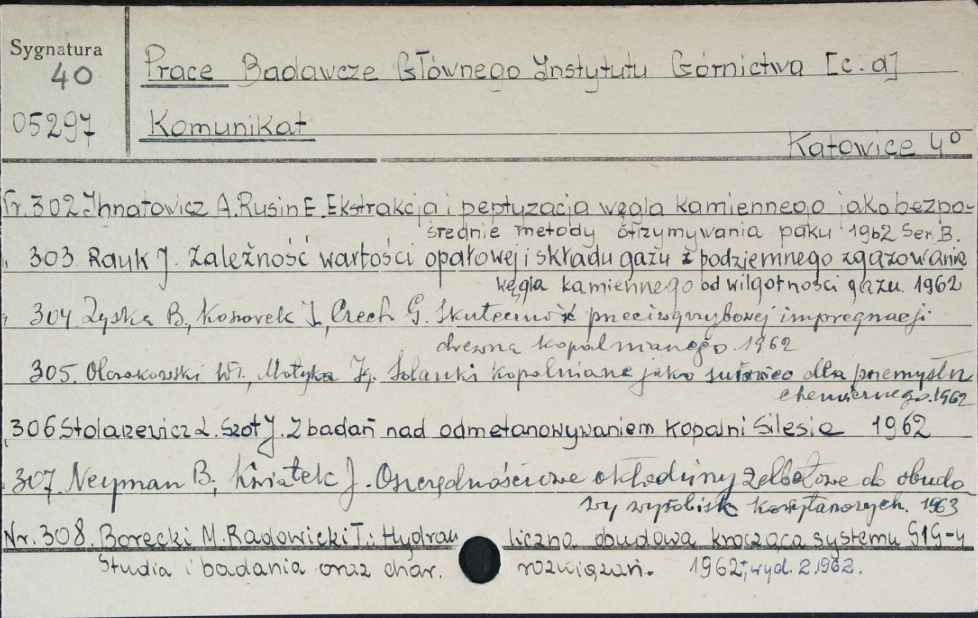 Sygnatura
40
05297
Prace Badawcze Głównego Instytutu Górnictwa [c.d]
Komunikat
Katowice 4°
Nr. 302 Ihnatowicz A. Rusin E. Ekstrakcja i peptyzacja węgla kamiennego jako bezpo-
średnie metody otrzymywania paku 1962 Ser. B.
303 Rauk J. Zależność wartości opałowej i składu gazu z podziemnego zgazowania
węgla kamiennego od wilgotności gazu. 1962
304 Zyska B., J., Czech G. Skuteczność przeciwgrzybowej impregnacji
drewna kopalnianego. 1962
305. Wł., Motyka Solanki kopalniane jako surowiec dla przemysłu
chemicznego. 1962
306 Stolarzewicz L. Szot J. Z badań nad odmetanowywaniem kopalni Silesia 1962
307. Neyman B., Kwiatek J. Oszczędnościowe okładziny żelbetowe do obudo
wy wyrobisk korytarzowych. 1963
Nr. 308. Borecki M. Radowicki T.: Hydrau liczna obudowa krocząca systemu GIG-4
Studia i badania oraz char. rozwiązań. 1962; wyd. 2 1962.